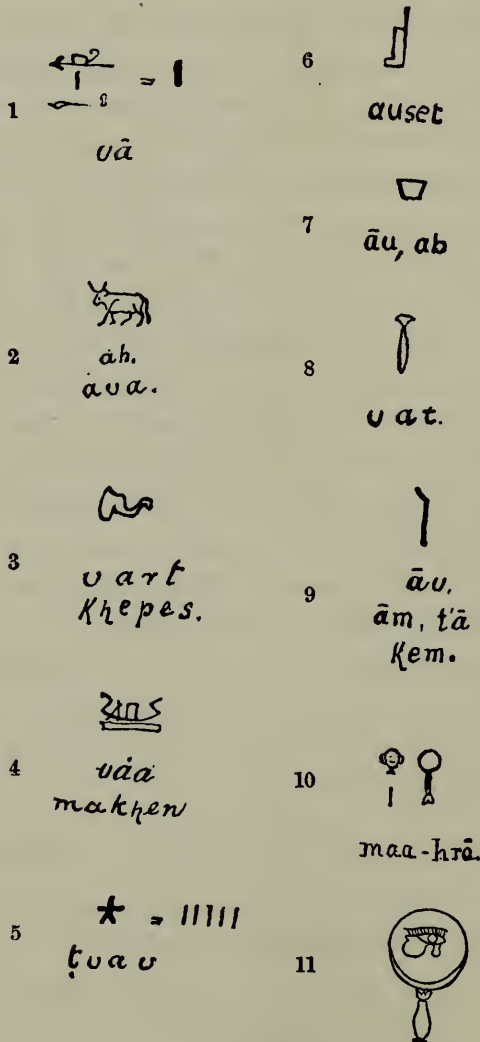 1
= 
uā
2
ȧh.
ȧua.
3
uart
Khepes.
4
uȧa
makhen
5
= IIIII
ṭuau
6
auset
7
āu, ab
8
uat.
9
āu,
ām, t'ā
Kem.
10
maa-hrā.
11